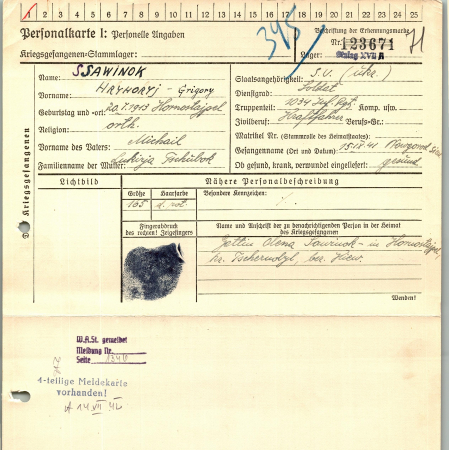 1 2 3 4 5 6 7 8 9 10 11 12 13 14 15 16 17 18 19 20 21 22 23 24 25
Personalkarte I: Personelle Angaben
Kriegsgefangenen-Stammlager:
345
Beschriftung der Erkennungsmarke
Nr. 123671
Lager: Stalag XVII A
71
Des Kriegsgefangenen
Name: SSAWINOK
Vorname: HRYHORYJ - Grigory
Geburtstag und -ort: 20.7.1913
Religion: orth.
Vorname des Vaters: Michail
Familienname der Mutter: Lukirja
Staatsangehörigkeit: S.U. (ukr.)
Dienstgrad: Soldat
Truppenteil: 1034 Inf. Rgt. Komp. usw.
Zivilberuf: Kraftfahrer Berufs-Gr.:
Matrikel Nr. (Stammrolle des Heimatstaates):
Gefangennahme (Ort und Datum) 15.IX.41
Ob gesund, krank, verwundet eingeliefert: gesund
Lichtbild
Nähere Personalbeschreibung
Größe Haarfarbe Besondere Kennzeichen:
165 d. rot
Fingerabdruck
des rechten! Zeigefingers
Name und Anschrift der zu benachrichtigenden Person in der Heimat
des Kriegsgefangenen
Olena Sawinok - in
Kr. Tschernobyl, bez. Kiew.
Wenden!
W.A.St. gemeldet
Meldung Nr.
Seite 1340
4-teilige Meldekarte
vorhanden!